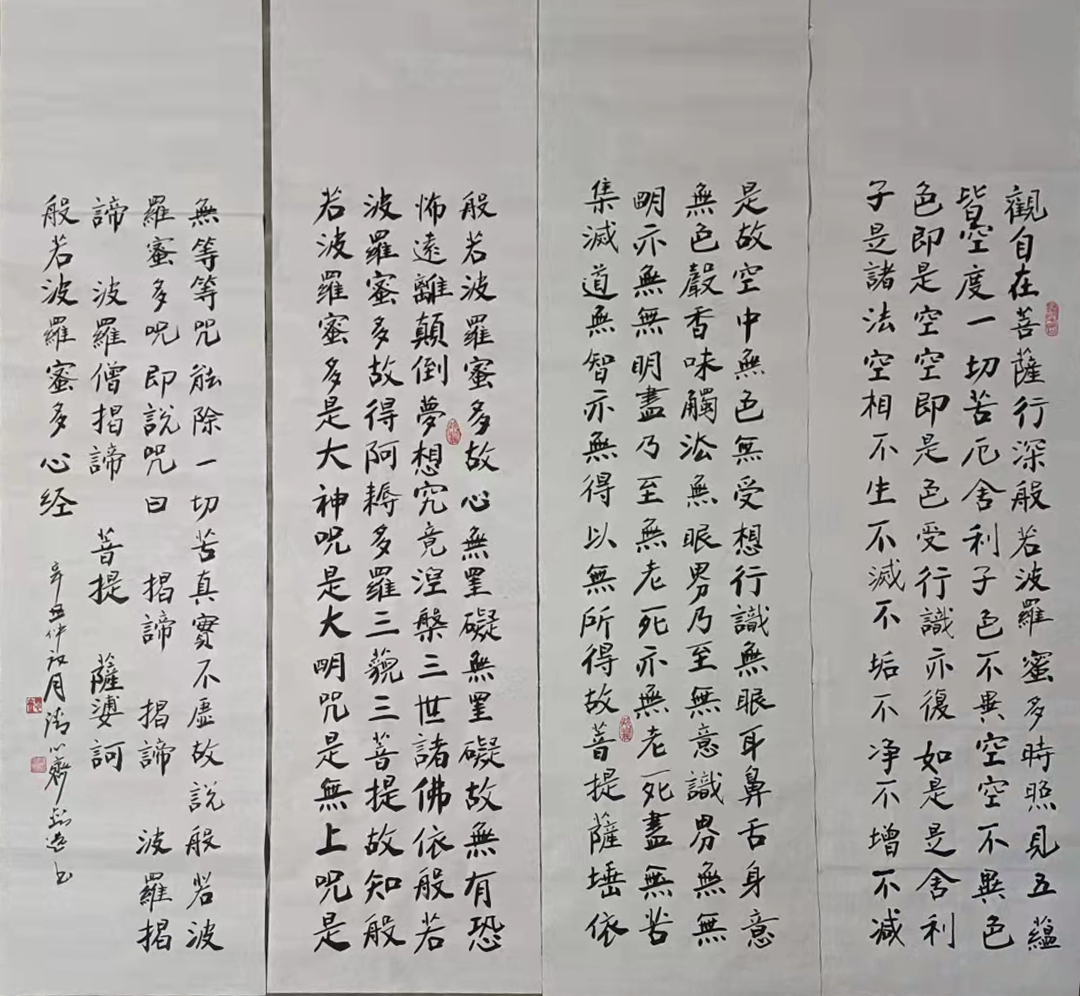 觀自在菩薩行深般若波羅蜜多時照見五蘊
皆空度一切苦厄舍利子色不異空空不異色
色即是空空即是色受行識亦復如是是舍利
子是諸法空相不生不滅不垢不净不增不減
是故空中無色無受想行識無眼耳鼻舌身意
無色聲香味觸法無眼界乃至無意識界無無
明亦無無明盡乃至無老死亦無老死盡無苦
集滅道無智亦無得以無所得故菩提薩埵依
般若波羅蜜多故心無罣礙無罣礙故無有恐
怖遠離顛倒夢想究竟涅槃三世諸佛依般若
波羅蜜多故得阿耨多羅三藐三菩提故知般
若波羅蜜多是大神咒是大明咒是無上咒是
無等等咒能除一切苦真實不虛故説般若波
羅蜜多咒即説咒曰 揭諦 揭諦 波羅揭
諦 波羅僧揭諦 菩提 薩婆訶
般若波羅蜜多心经
辛丑仲秋月